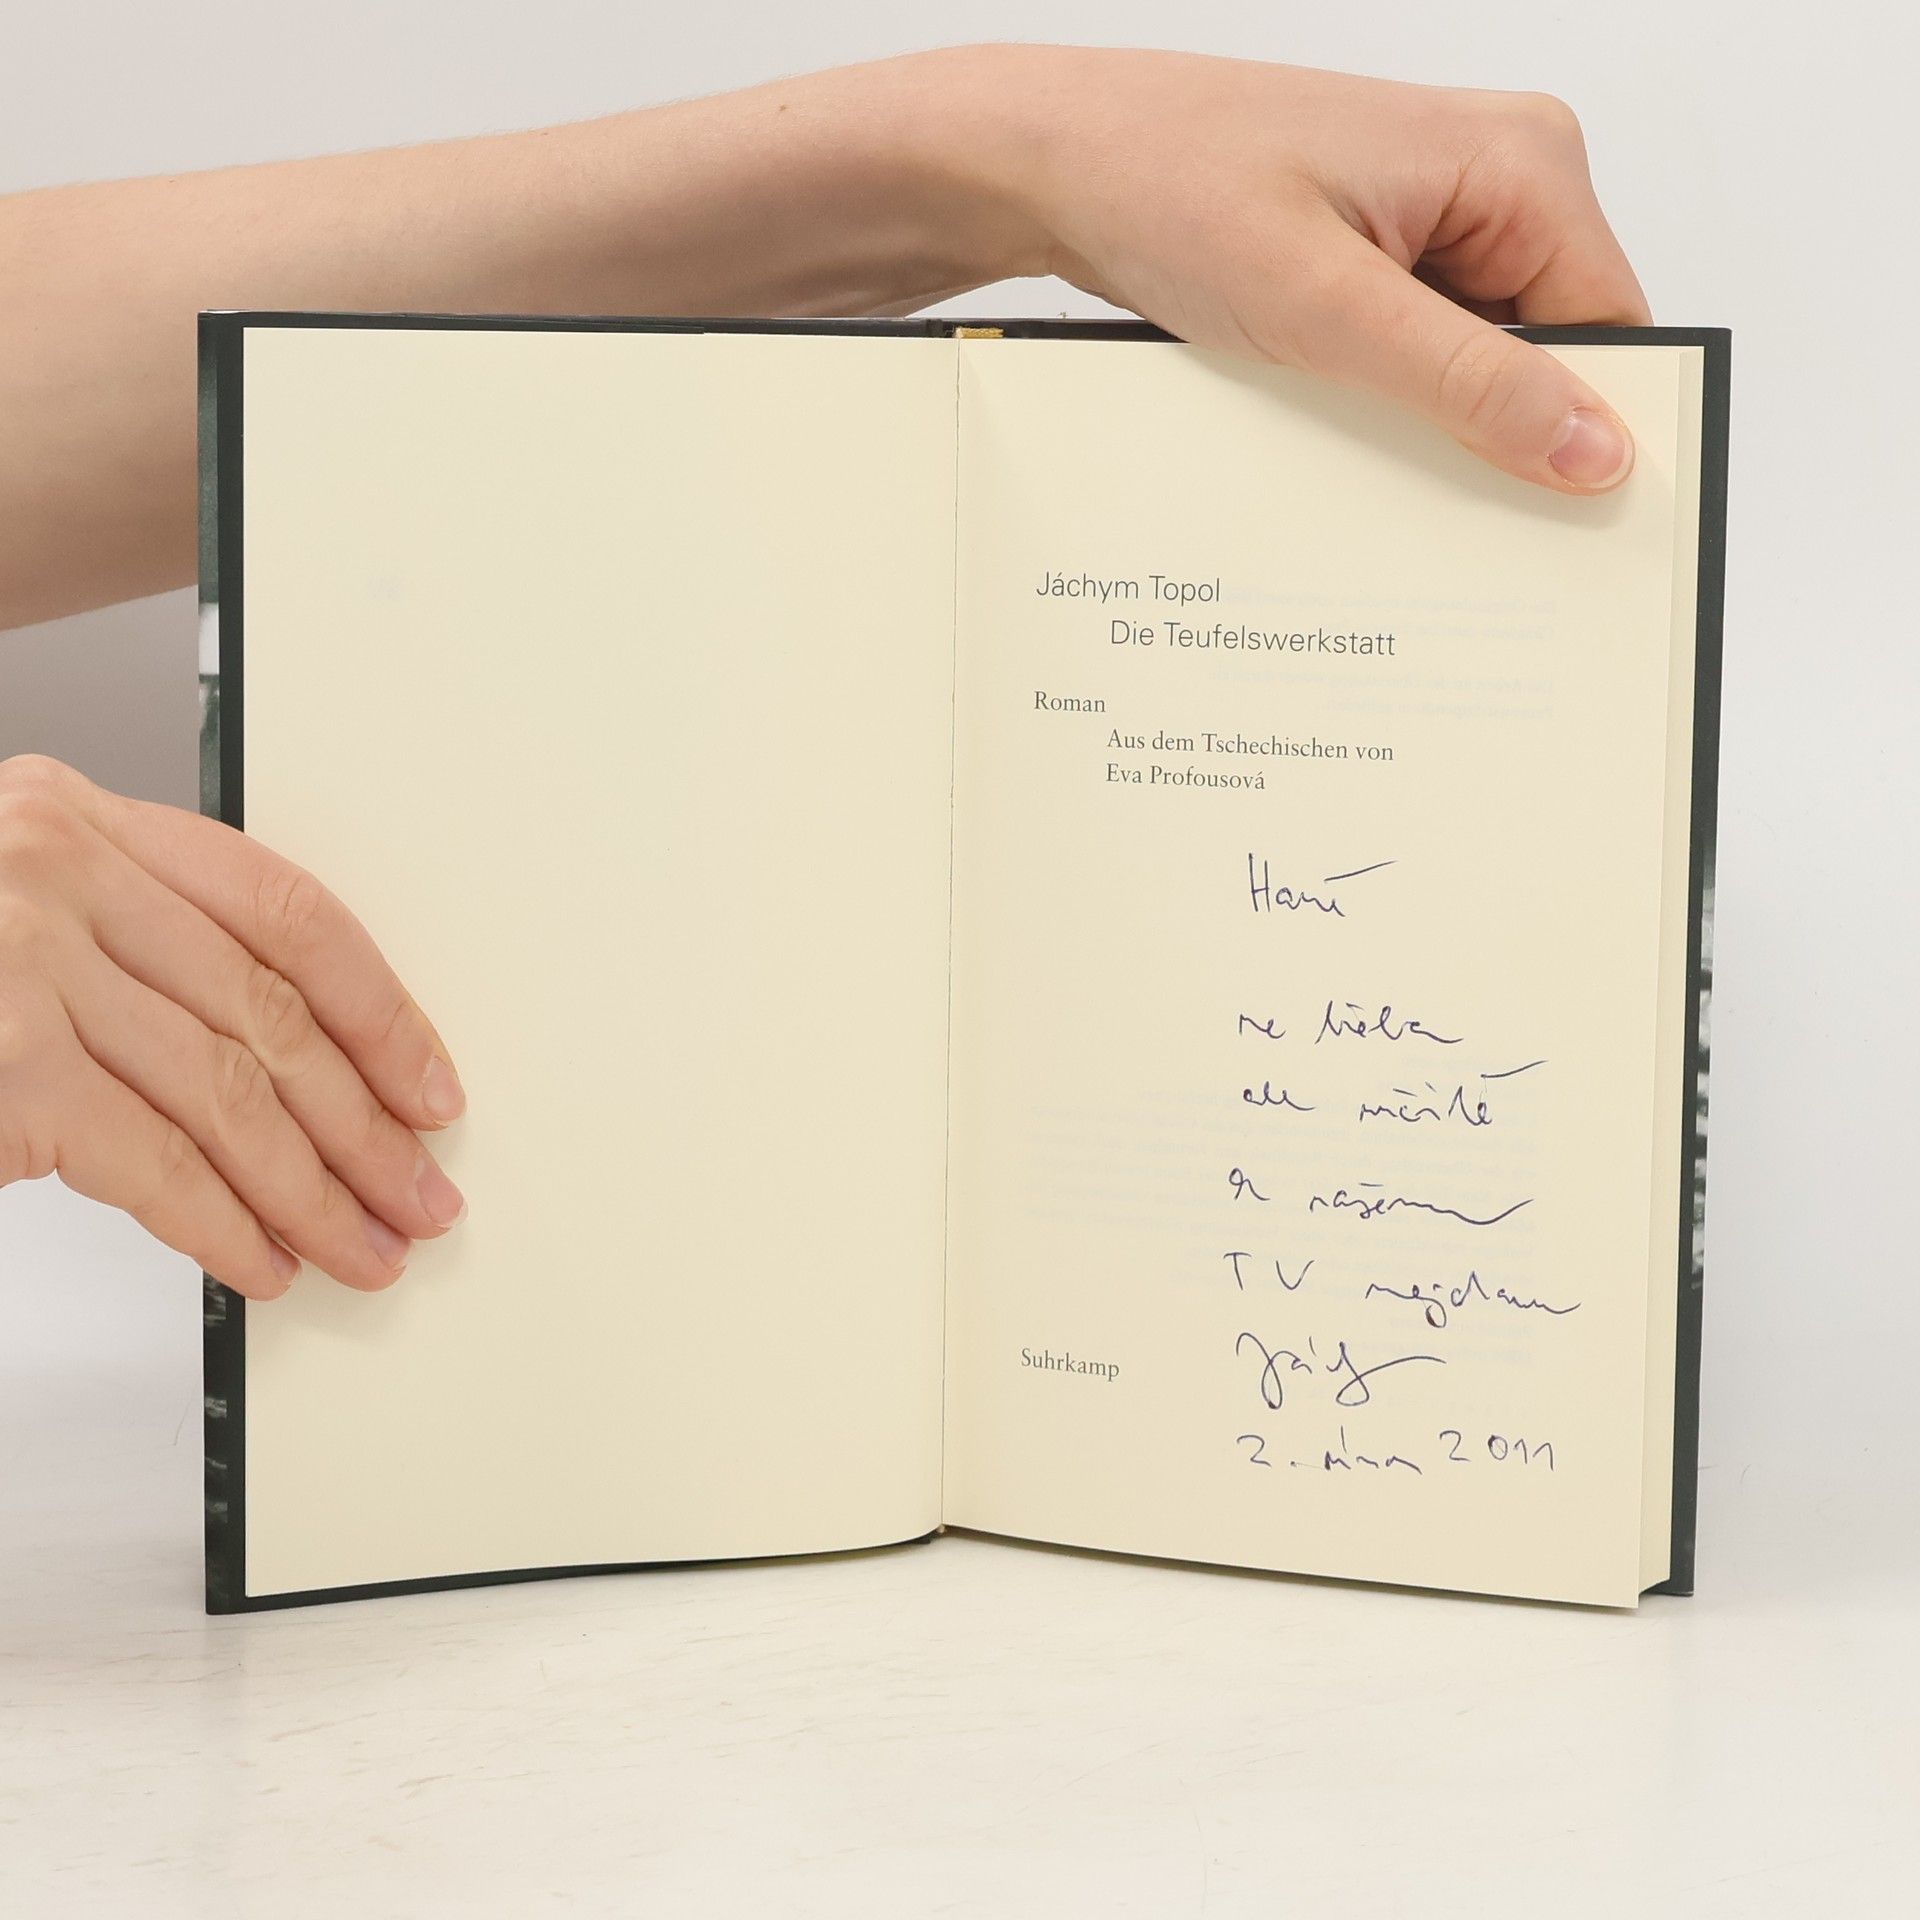 Jáchym Topol
Die Teufelswerkstatt
Roman
Aus dem Tschechischen von
Eva Profousová
Haně
ne třeba
ale určitě
k našemu
TV mejdanu
Suhrkamp
Jách
2. února 2011